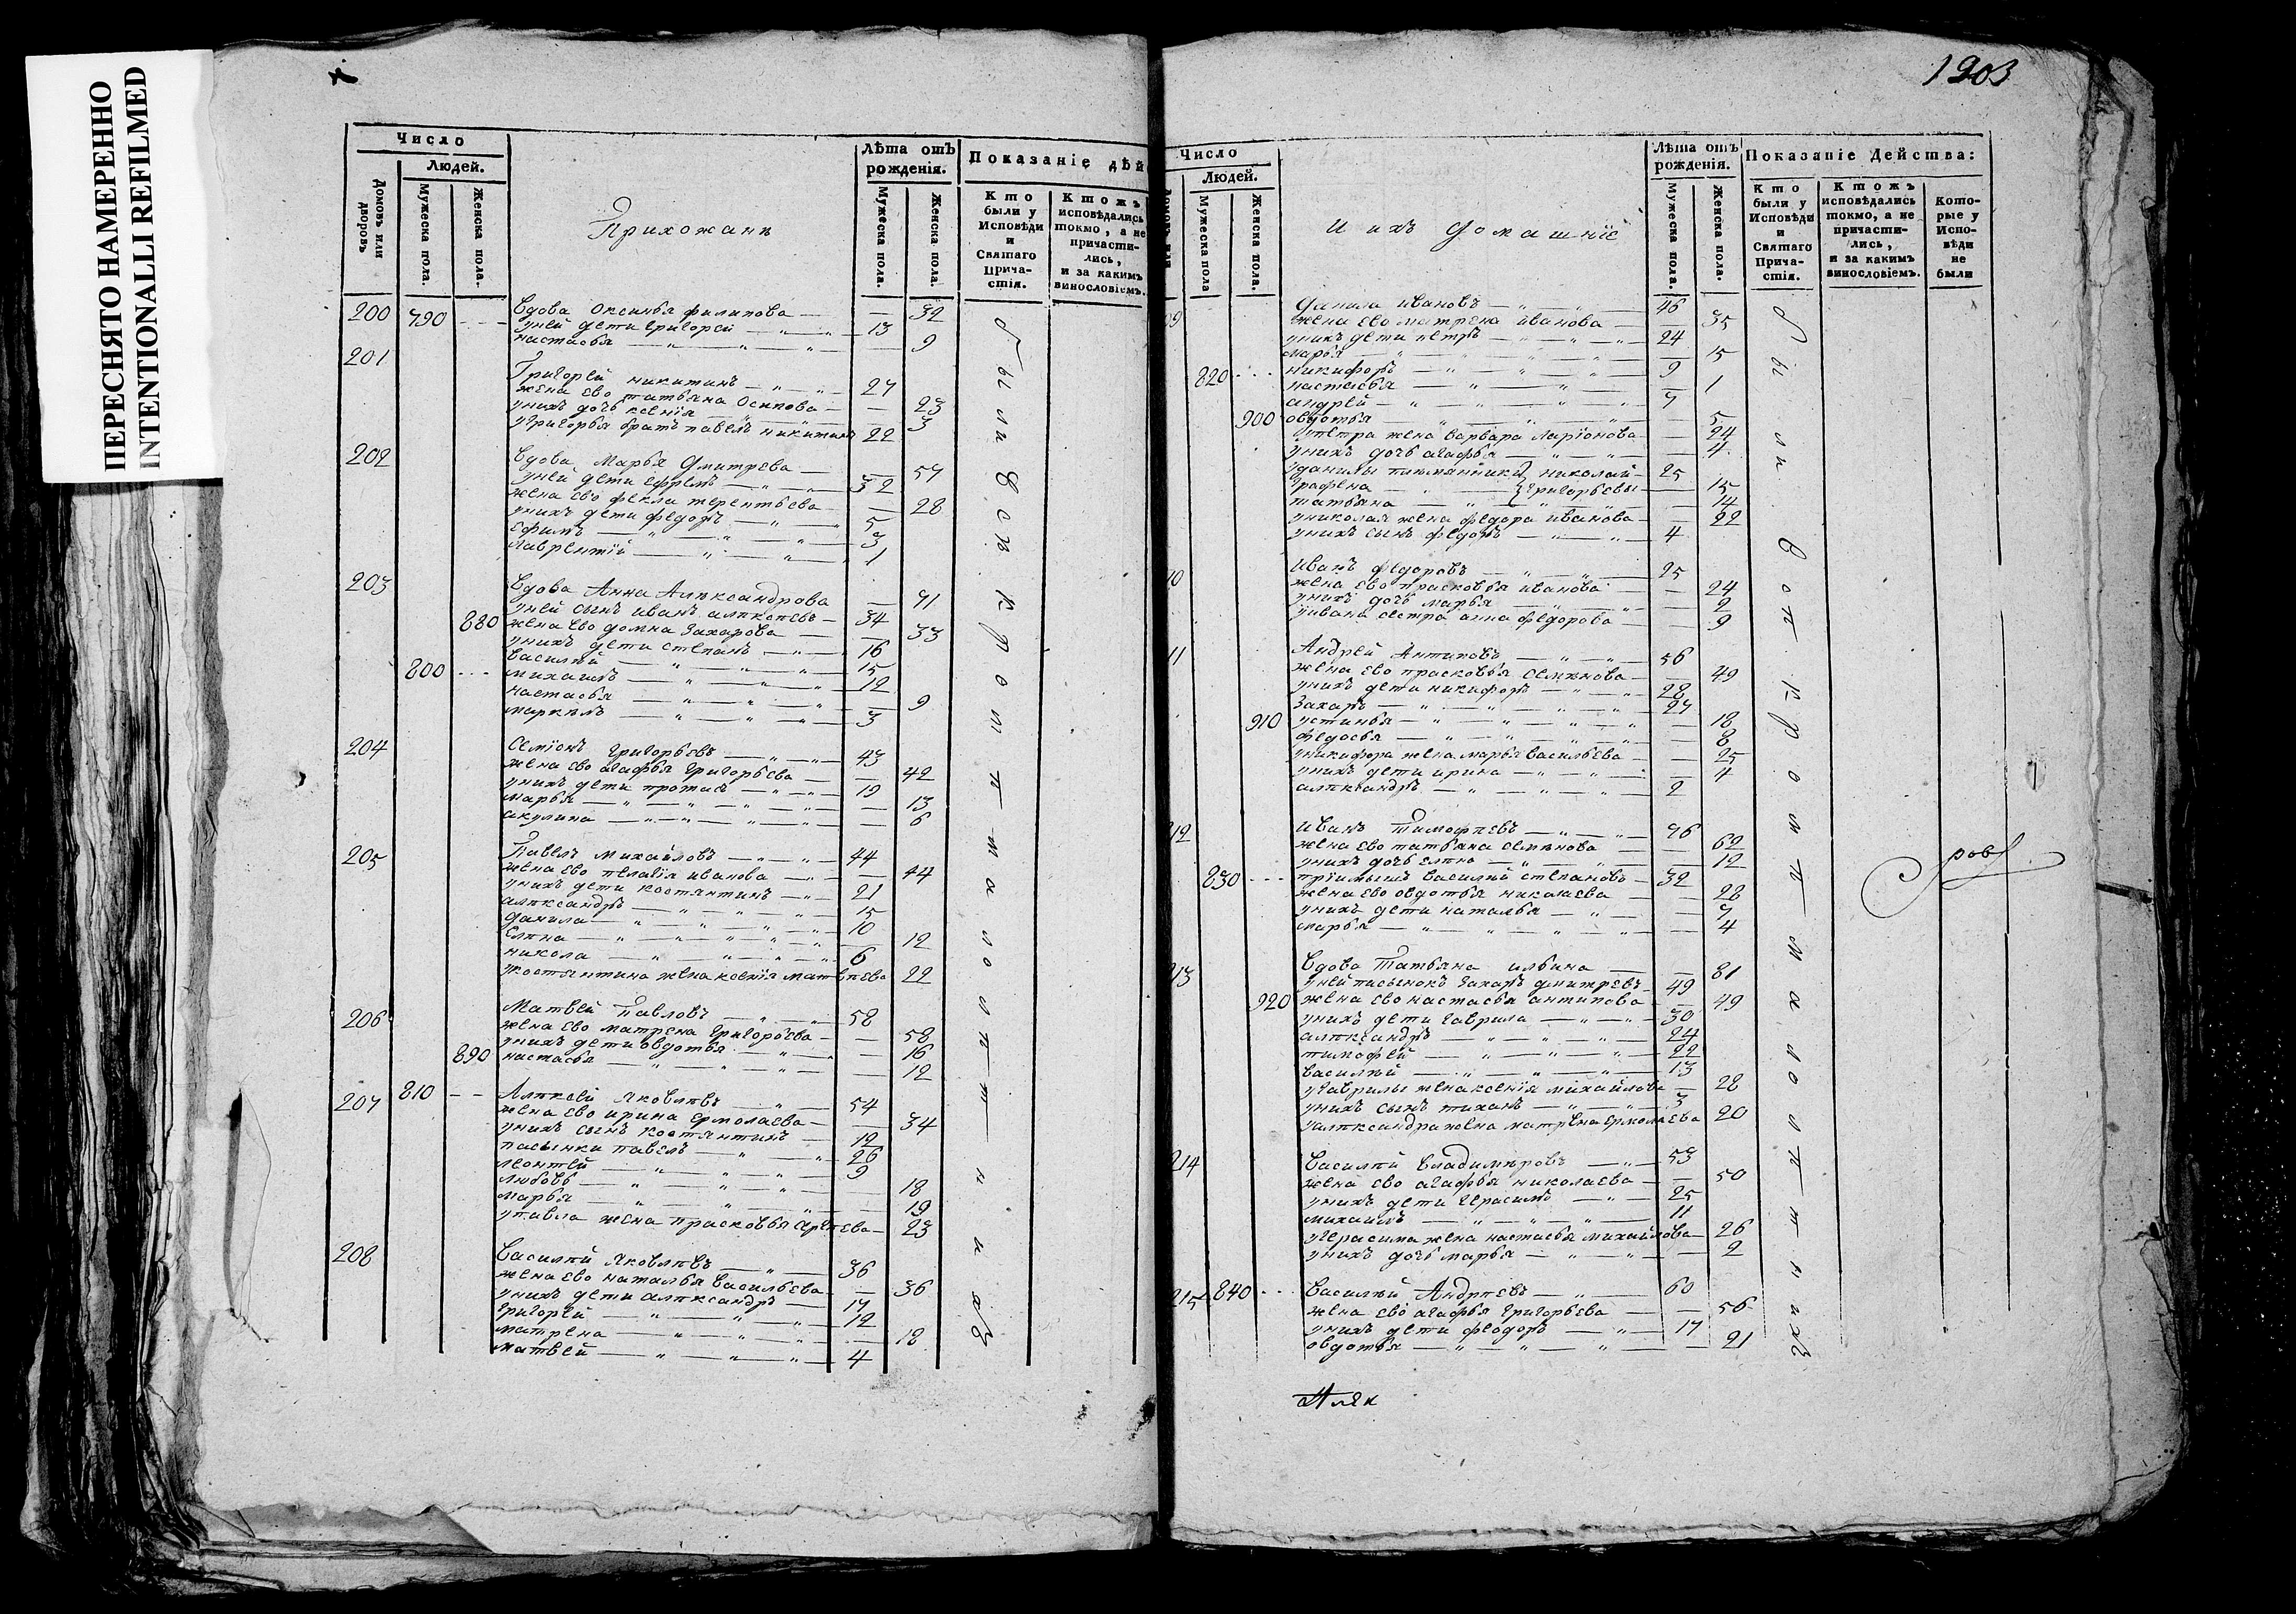 ПЕРЕСНЯТО НАМЕРЕННО
INTENTIONALLI REFILMED
Число
Людей.
Домовъ или дворовъ
Мужеска пола.
Женска пола.
Прихожанъ
Лѣта отъ рожденія.
Мужеска пола.
Женска пола.
Показаніе дѣй
Кто были у Исповѣди и Святаго Прича-стія.
Ктожъ исповѣдались токмо, а не причасти-лись, и за какимъ винословіемъ.
200 790 Вдова Оксинья филипова — 32
уней дети григорей 13
настасья 9
201 Григорей никитинъ 27
жена ево татьяна Осипова — 23
унихъ дочь ксенїя 3
уГригорья братъ павелъ никитинъ 22
202 Вдова Марья Дмитрева — 57
уней дети ефремъ 32
жена ево фекла терентьева — 28
унихъ дети федоръ 5
ефимъ 3
лаврентїй 1
203 Вдова Анна Алѣксандрова — 71
уней сынъ иванъ алѣксѣевъ 34
880 жена ево домна Захарова — 33
унихъ дети степанъ 16
василѣй 15
800 михаилъ 12
настасья 9
маркѣлъ 3
204 Семїонъ григорьевъ 43
жена ево агафья григорьева — 42
унихъ дети протасъ 19
марья 13
акулина 6
205 Павелъ михайловъ 44
жена ево пелагїя иванова — 44
унихъ дети костянтинъ 21
алѣксандръ 15
данила 10
Елѣна 12
никола 6
укостянтина жена ксенїя матвѣева 22
206 Матвей Павловъ 58
жена ево матрена григорьева — 58
унихъ дети овдотья — 16
890 настасья — 12
207 810 Алѣксей Яковлѣвъ 54
жена ево ирина Ермолаева — 34
унихъ сынъ костянтинъ 12
пасынки павелъ 26
леонтей 9
любовь 18
марья 19
упавла жена прасковья 23
208 Василѣй Яковлѣвъ 36
жена ево наталья васильева — 36
унихъ дети алѣксандръ 17
григорей 12
матрена 18
матвей 4
были всѣ кромѣ малолѣтнихъ
1203
Число
Людей.
Мужеска пола
Женска пола.
и ихъ домашнїе
Лѣта отъ рожденія.
Мужеска пола.
Женска пола.
Показаніе Действа:
Кто были у Исповѣди и Святаго Прича-стія.
Ктожъ исповѣдались токмо, а не причасти-лись, и за какимъ винословіемъ.
Кото-рые у Испо-вѣди не были
09 Данила ивановъ 46
жена ево матрена иванова — 35
унихъ дети петръ 24
марья — 15
820 никифоръ 9
настасья — 1
андрей 7
900 овдотья 5
упетра жена варвара Ларїонова — 24
унихъ дочь агафья — 4
уданилы племянники николай 25
графена григорьевы — 15
татьяна — 14
униколая жена федора иванова — 22
унихъ сынъ федоръ 4
10 Иванъ федоровъ 25
жена ево прасковья иванова — 24
унихъ дочь марья — 2
уивана сестра анна федорова — 9
11 Андрей Антиповъ 56
жена ево прасковья семѣнова — 49
унихъ дети никифоръ 28
захаръ 27
910 устинья — 18
федосья — 8
уникифора жена марья васильева — 25
унихъ дети ирина — 4
алѣксандръ 2
212 Иванъ Тимофѣевъ 76
жена ево татьяна семѣнова — 62
унихъ дочь елѣна — 12
830 прїимышъ василий степановъ 32
жена ево овдотья николаева — 28
унихъ дети наталья — 7
марья — 4
213 Вдова Татьяна ильина — 81
уней пасынокъ захаръ дмитревъ 49
920 жена ево настасья антипова — 49
унихъ дети гаврила 30
алѣксандръ 24
тимофей 22
василѣй 13
угаврилы жена ксенїя михайлова — 28
унихъ сынъ тиханъ 3
уалѣксандра жена матрена ермолаева 20
214 Василѣй владимѣровъ 53
жена ево агафья николаева — 50
унихъ дети герасимъ 25
михаилъ 11
угерасима жена настасья михайлова 26
унихъ дочь марья — 2
215 840 Василѣй Андрѣевъ 60
жена ево агафья григорьева — 56
унихъ дети феодоръ 17
овдотья — 21
были всѣ кромѣ малолѣтнихъ
ровъ